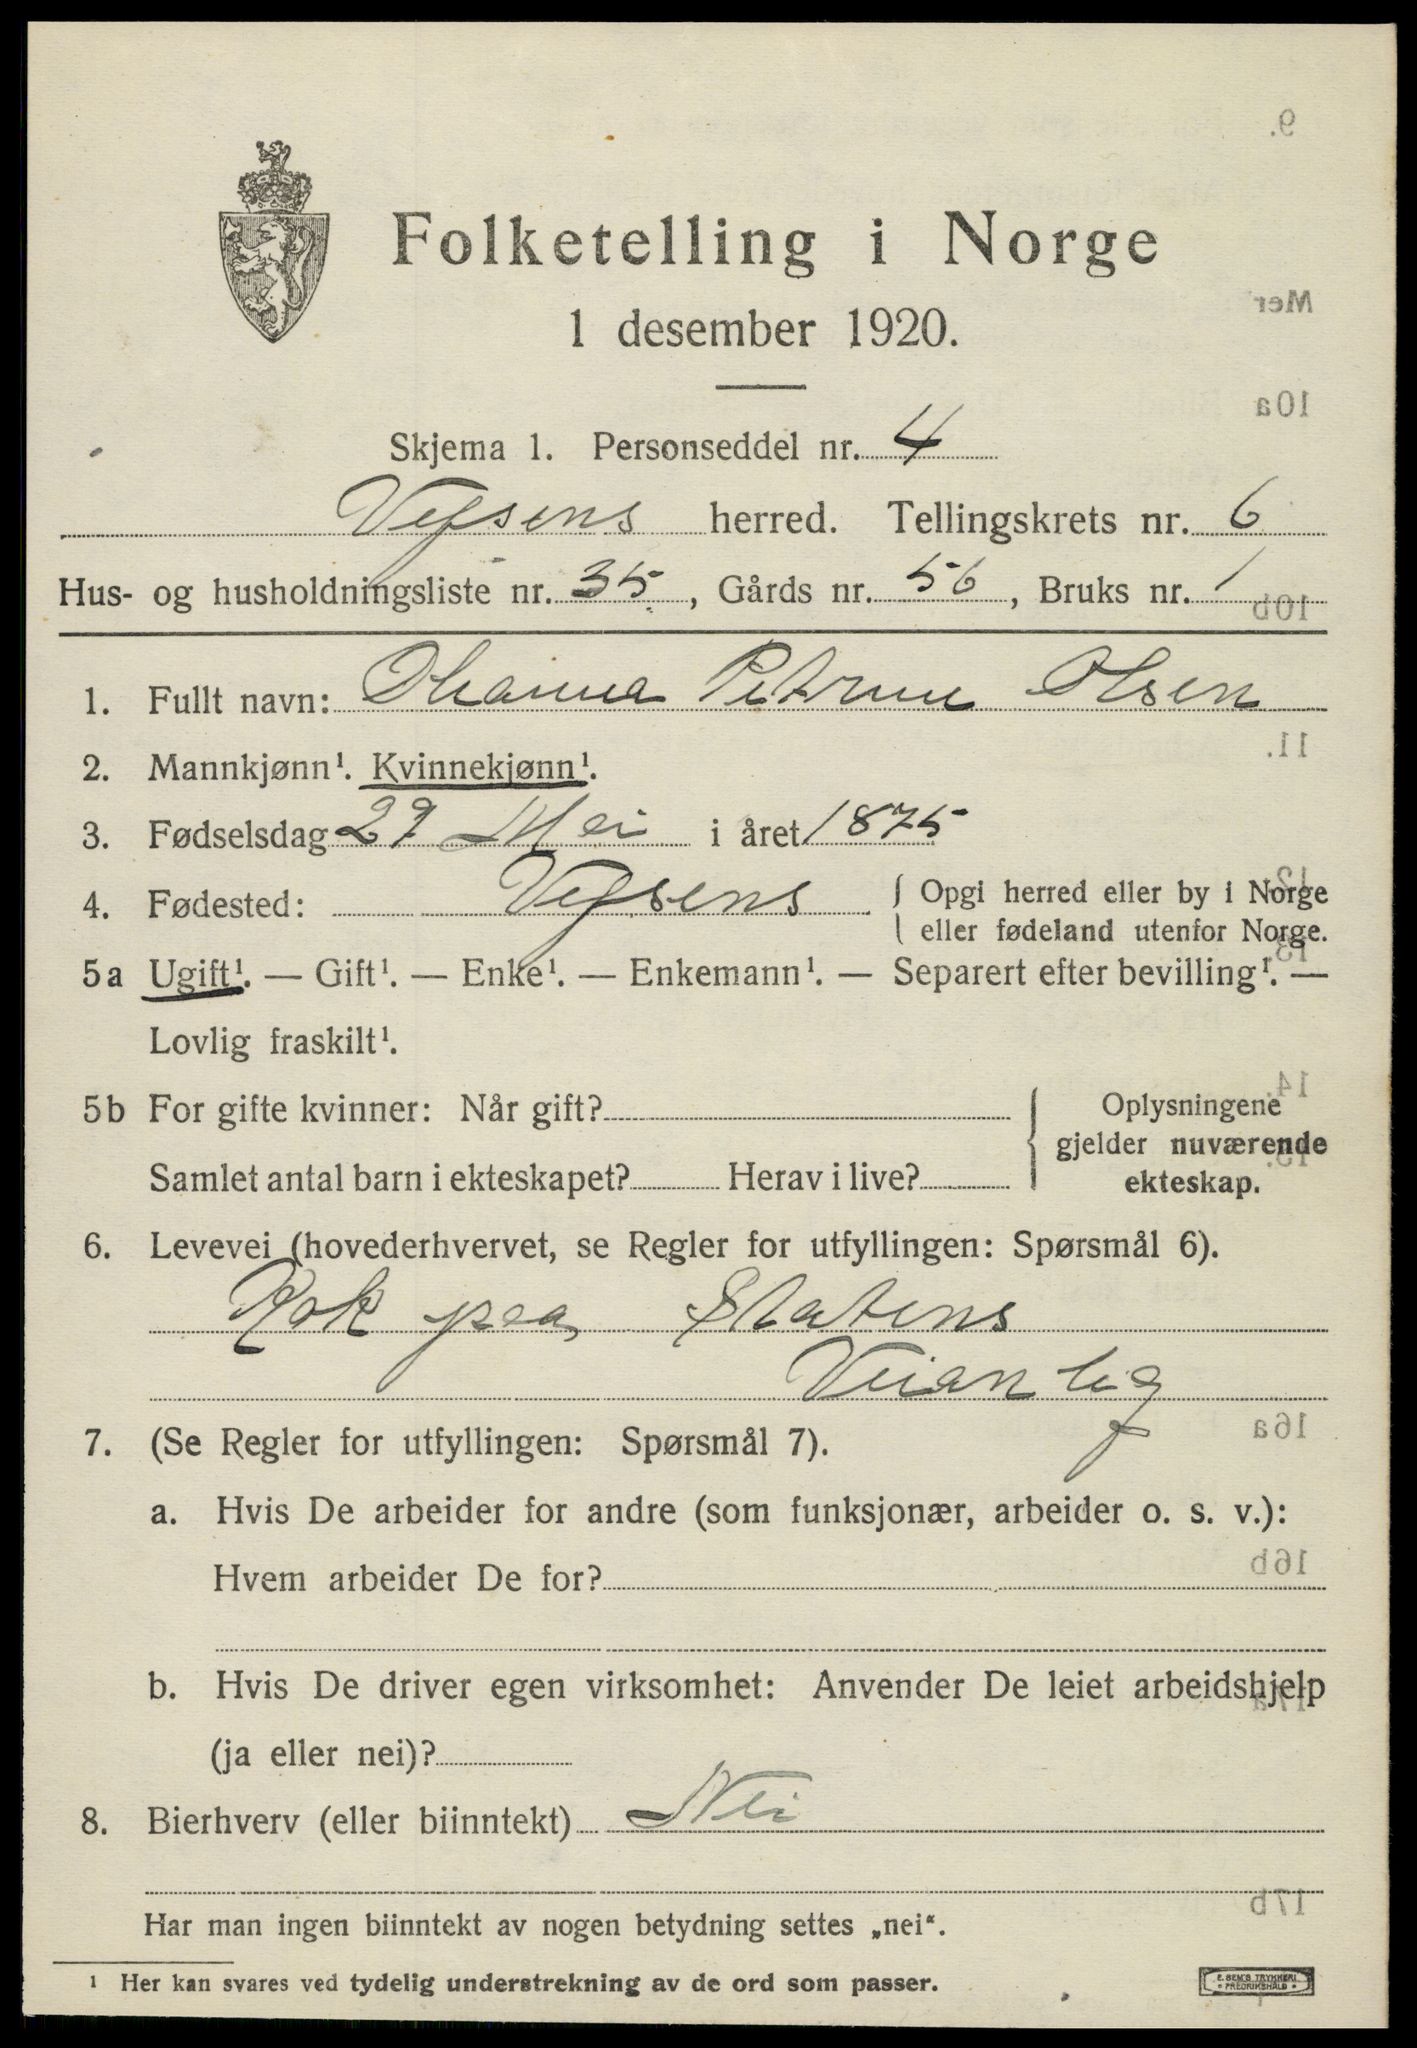 Folketelling i Norge
1 desember 1920.
Skjema 1. Personseddel nr. 4
Vefsens herred. Tellingskrets nr. 6
Hus- og husholdningsliste nr. 35, Gårds nr. 56, Bruks nr. 1
1. Fullt navn: Petrine Olsen
2. Mannkjønn¹. Kvinnekjønn¹.
3. Fødselsdag 29 Mei i året 1875
4. Fødested: Vefsens { Opgi herred eller by i Norge
eller fødeland utenfor Norge.
5a Ugift¹. — Gift¹. — Enke¹. — Enkemann¹. — Separert efter bevilling¹. —
Lovlig fraskilt¹.
5b For gifte kvinner: Når gift? { Oplysningene
gjelder nuværende
Samlet antal barn i ekteskapet? Herav i live? ekteskap.
6. Levevei (hovederhvervet, se Regler for utfyllingen: Spørsmål 6).
Kok paa Statens
Veianleg
7. (Se Regler for utfyllingen: Spørsmål 7).
a. Hvis De arbeider for andre (som funksjonær, arbeider o. s. v.):
Hvem arbeider De for?
b. Hvis De driver egen virksomhet: Anvender De leiet arbeidshjelp
(ja eller nei)?
8. Bierhverv (eller biinntekt) Nei
Har man ingen biinntekt av nogen betydning settes „nei“.
¹ Her kan svares ved tydelig understrekning av de ord som passer.
E. SEM'S TRYKKERI
• FREDRIKSHALD •